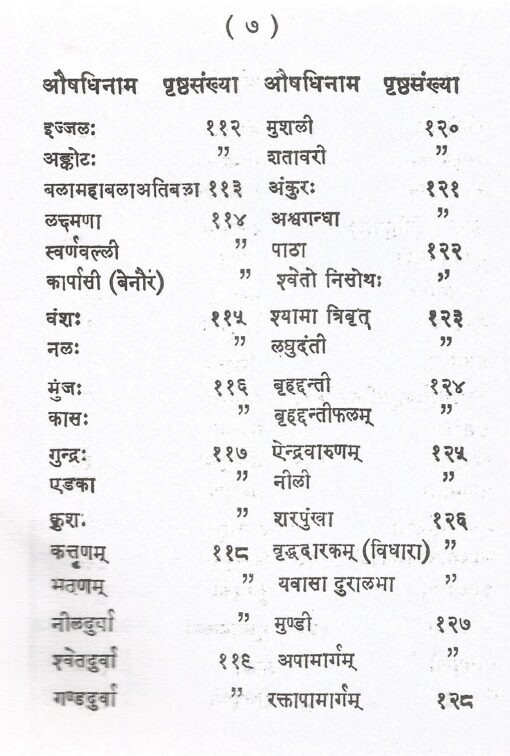 ( ७ )
औषधिनाम पृष्ठसंख्या औषधिनाम पृष्ठसंख्या
इज्जलः ११२ मुशली १२०
अङ्कोटः ” शतावरी ”
बलामहाबलाअतिबला ११३ अंकुरः १२१
लक्ष्मणा ११४ अश्वगन्धा ”
स्वर्णवल्ली ” पाठा १२२
कार्पासी (बेनौरं) ” श्वेतो निसोथः ”
वंशः ११५ श्यामा त्रिवृत् १२३
नलः ” लघुदंती ”
मुंजः ११६ बृहद्दन्ती १२४
कासः ” बृहद्दन्तीफलम् ”
गुन्द्रः ११७ ऐन्द्रवारुणम् १२५
एडका ” नीली ”
कुशः ” शरपुंखा १२६
कत्तृणम् ११८ वृद्धदारकम् (विधारा) ”
भतणम् ” यवासा दुरालभा ”
नीलदुर्वा ” मुण्डी १२७
श्वेतदुर्वा ११९ अपामार्गम् ”
गण्डदुर्वा ” रक्तापामार्गम् १२८